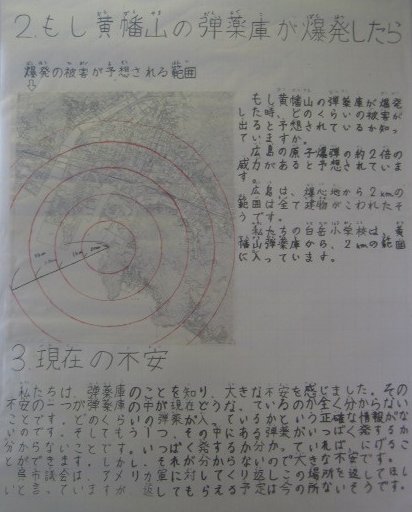 2.もし黄幡山の弾薬庫が爆発したら
爆発の被害が予想される範囲
もし黄幡山の弾薬庫が爆発
した時、どのくらいの被害が
出ると予想されているか知っ
ていますか。
広島の原子爆弾の約2倍の
威力があると予想されていま
す。
広島は、爆心地から2kmの
範囲は全て建物がこわれたそ
うです。
私たちの白岳小学校は、黄
幡山弾薬庫から、2kmの範囲
に入っています。
3.現在の不安
私たちは、弾薬庫のことを知り、大きな不安を感じました。その
不安の一つが弾薬庫の中が現在、どうなっているのか全く分からない
ことです。どのくらいの弾薬が入っているかという正確な情報がな
いのです。そしてもう1つ、その中にある弾薬がいつばく発するか
分からないことです。いつばく発するか分かっていれば、にげるこ
とができます。しかし、それが分からないので大きな不安です。
呉市議会は、アメリカ軍に対してくり返しこの場所を返してほし
いと言っていますが返してもらえる予定は今の所ないそうです。